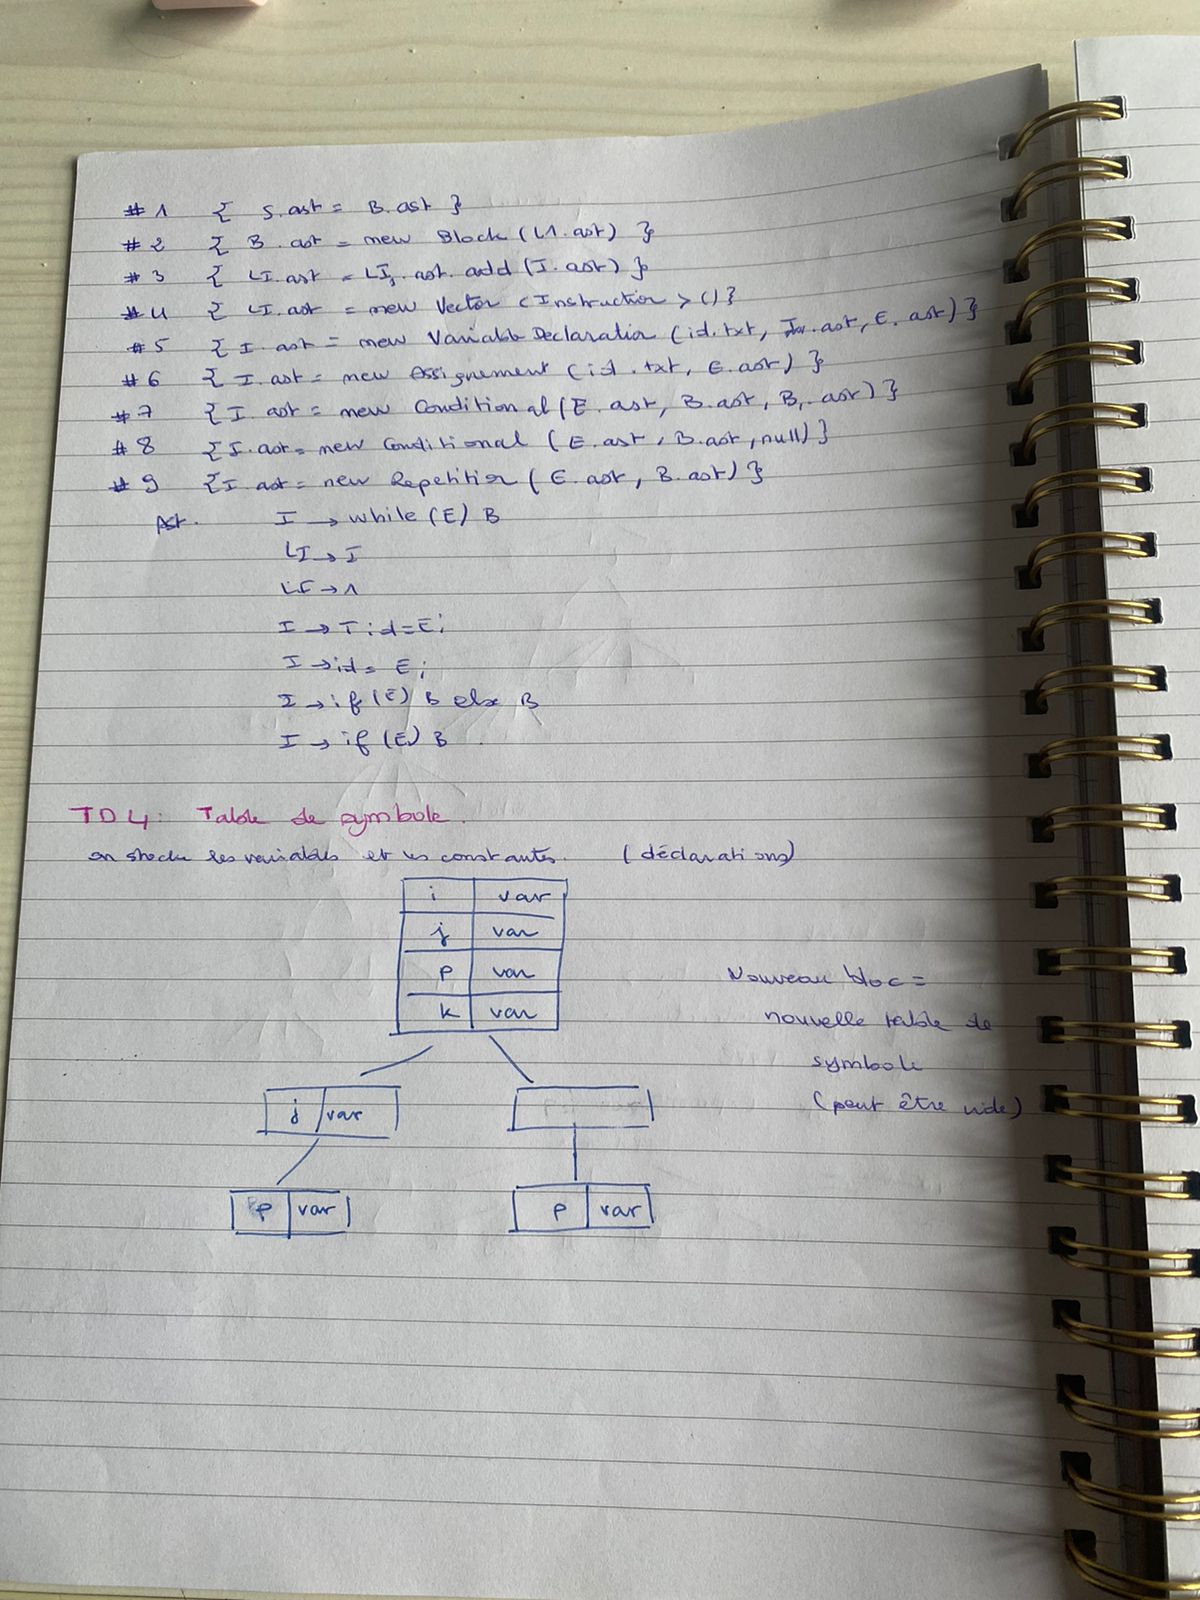 #1 { S.ast = B.ast }
#2 { B.ast = new Block (LI.ast) }
#3 { LI.ast = LI₁.ast.add (I.ast) }
#4 { LI.ast = new Vector <Instruction> () }
#5 { I.ast = new Variable Declaration (id.txt, .ast, E.ast) }
#6 { I.ast = new Assignement (id.txt, E.ast) }
#7 { I.ast = new Conditional (E.ast, B.ast, B₁.ast) }
#8 { I.ast = new Conditional (E.ast, B.ast, null) }
#9 { I.ast = new Repetition (E.ast, B.ast) }
Ast. I → while (E) B
LI → I
LI → Λ
I → T id = E;
I → id = E;
I → if (E) B else B
I → if (E) B
TD4: Table de symbole.
on stocke les variables et les constantes. (déclarations)
i var
j var
p var
k var
Nouveau bloc =
nouvelle table de
symbole
(peut être vide)
j var
p var
p var